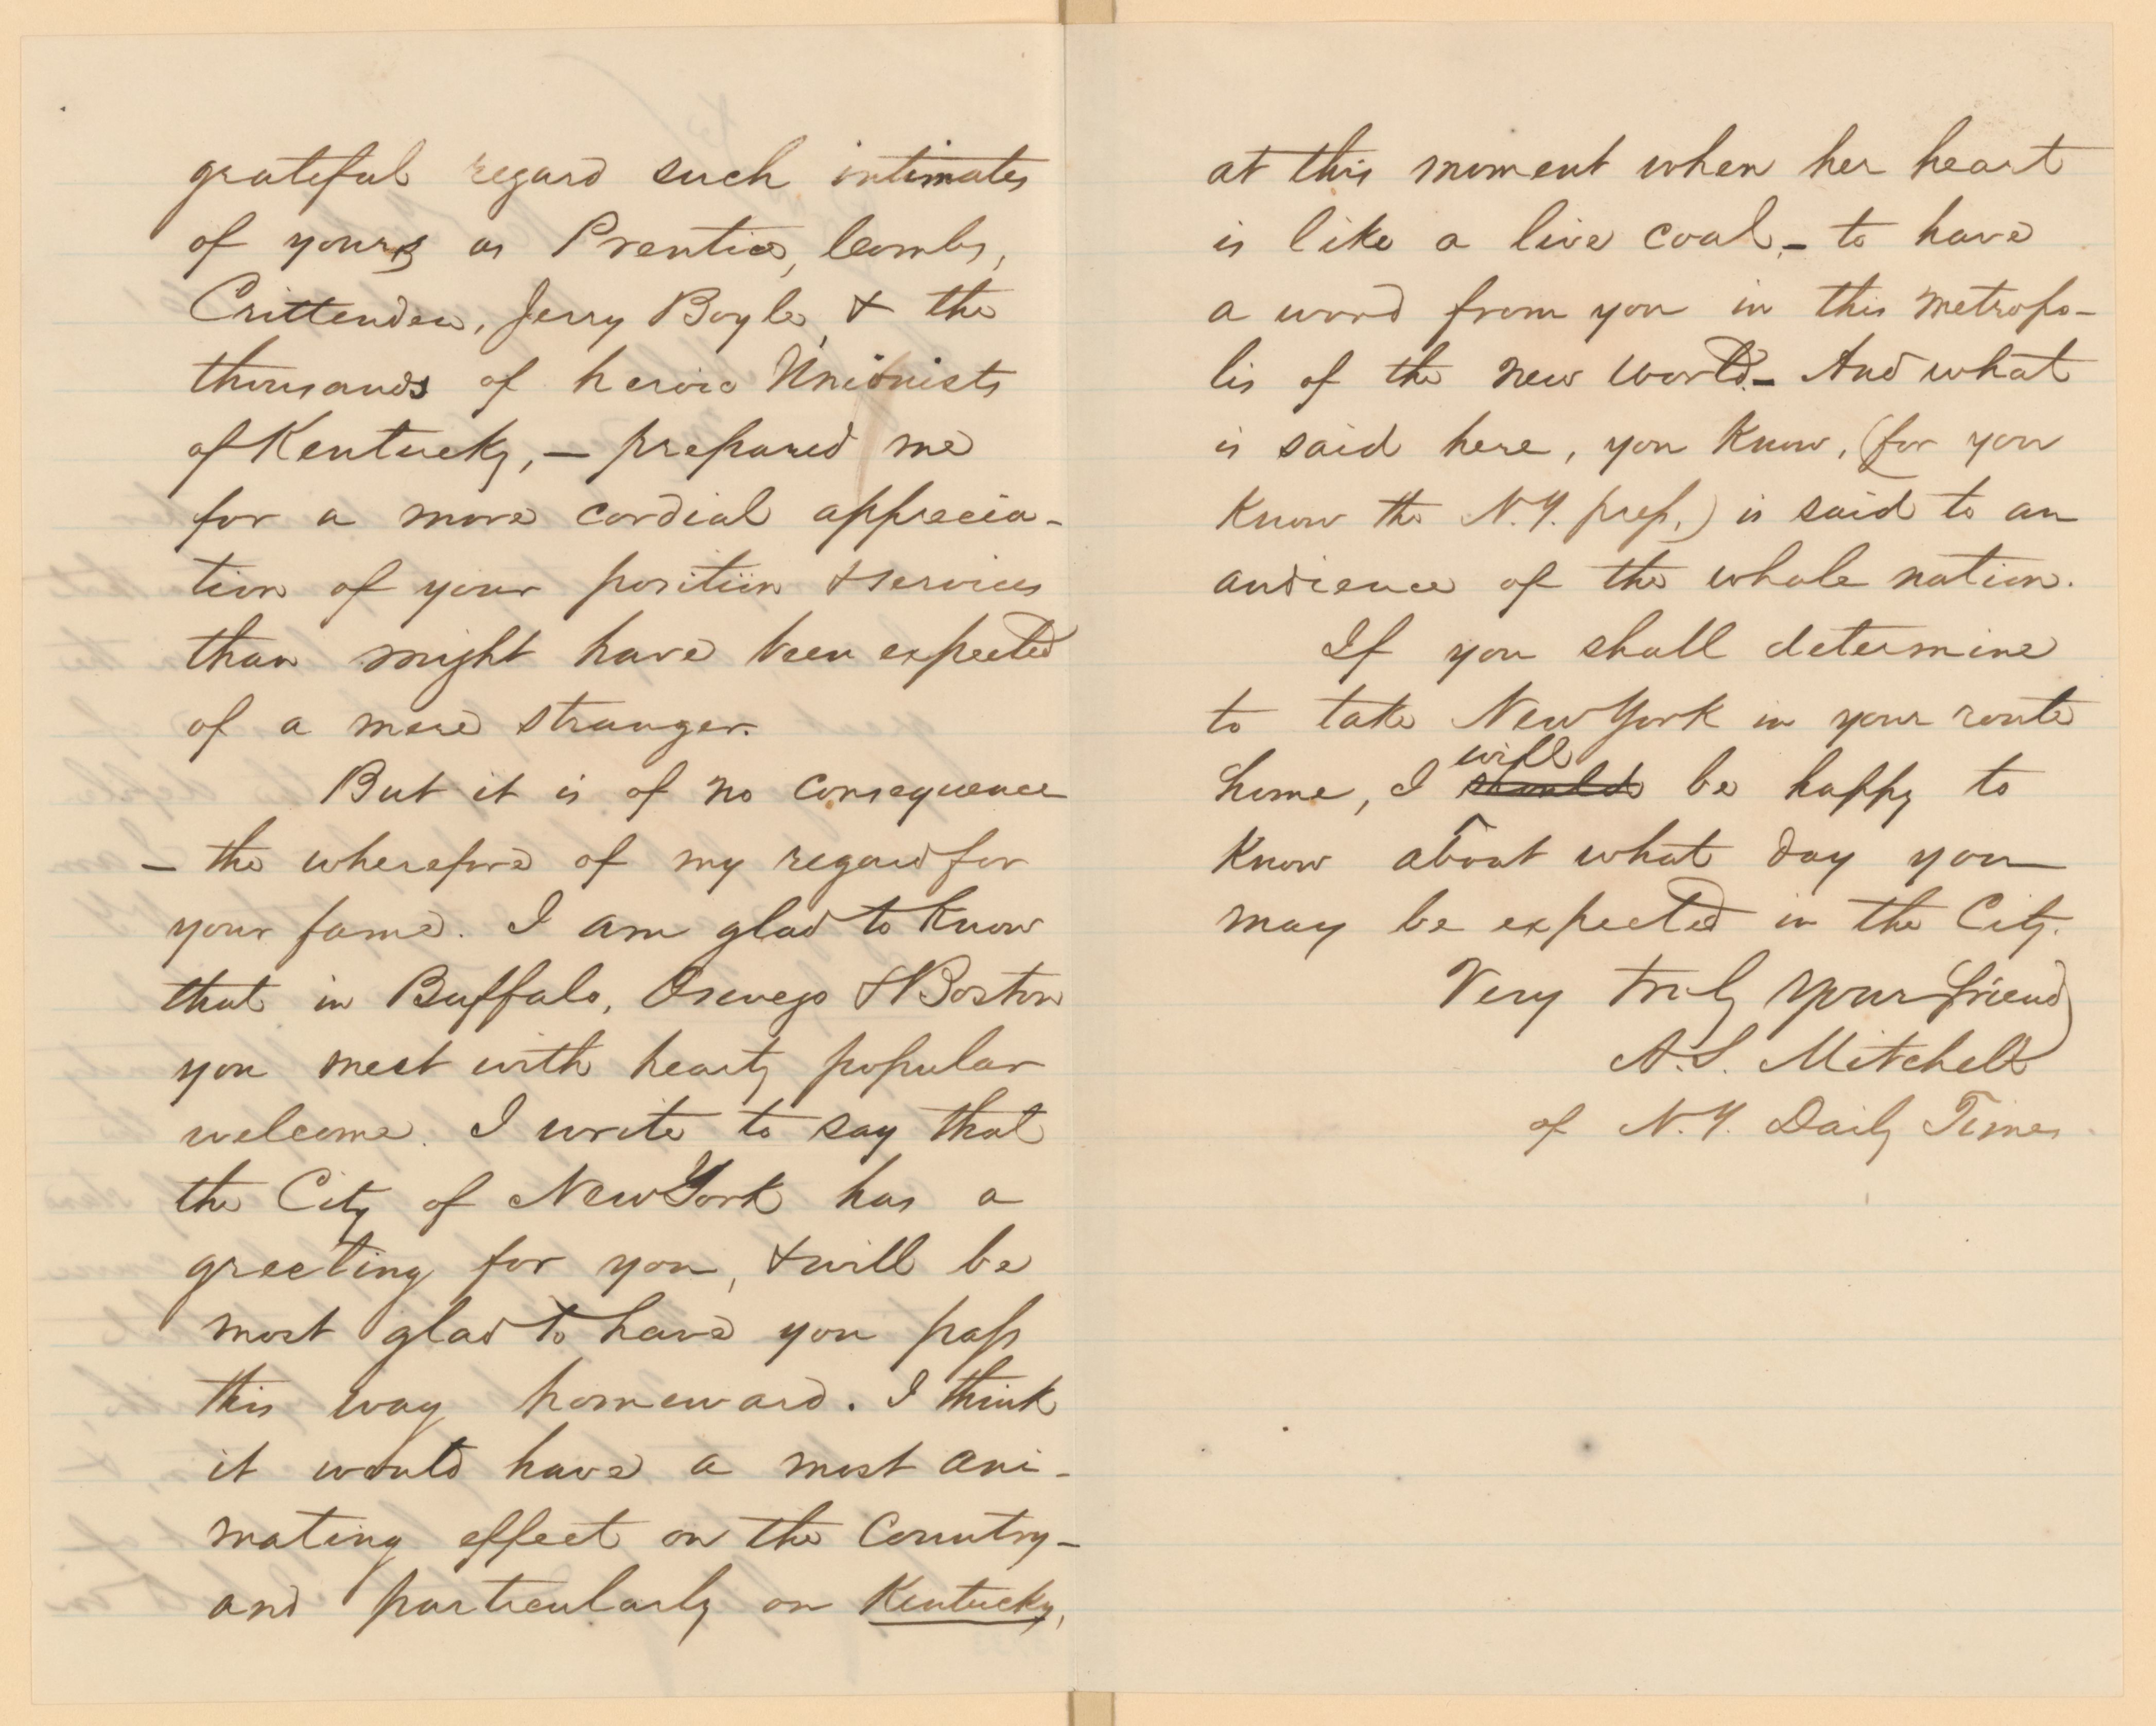 grateful regard such intimates
of yours as Prentice, Combs,
Crittenden, Jerry Boyle, & the
thousands of heroic Unionists
of Kentucky, — prepared me
for a more cordial apprecia-
tion of your position & services
than might have been expected
of a mere stranger.
But it is of no consequence
— the wherefore of my regard for
your fame. I am glad to know
that in Buffalo, Oswego & Boston
you meet with hearty popular
welcome. I write to say that
the City of New York has a
greeting for you, & will be
most glad to have you pass
this way homeward. I think
it would have a most ani-
mating effect on the Country —
and particularly on Kentucky,
at this moment when her heart
is like a live coal, — to have
a word from you in this metropo-
lis of the new world — And what
is said here, you know, (for you
know the N.Y. press,) is said to an
audience of the whole nation.
If you shall determine
to take New York in your route
home, I should will be happy to
know about what day you
may be expected in the City.
Very truly your friend
A.S. Mitchell
of N.Y. Daily Times